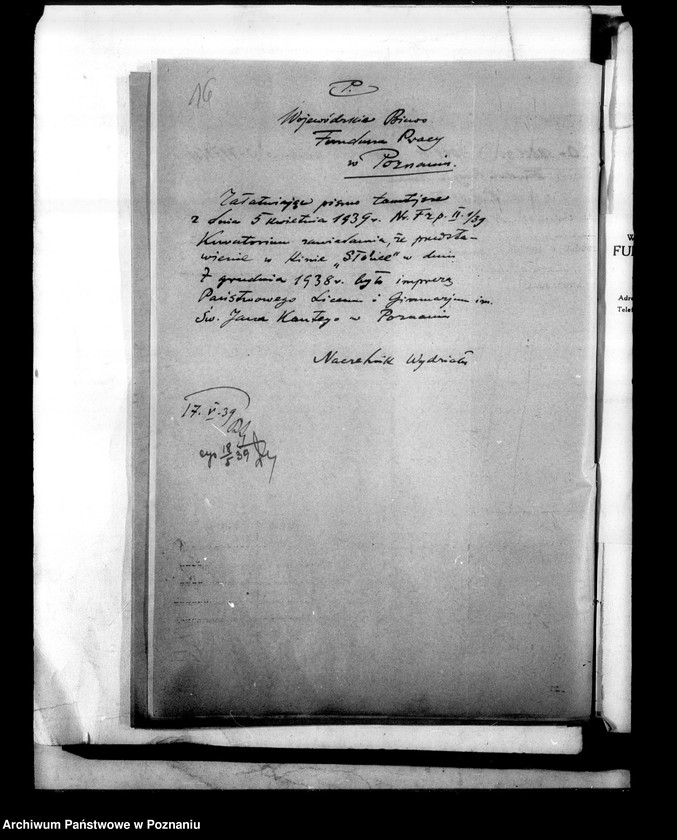 16
P.
Wojewódzkie Biuro
Funduszu Pracy
w Poznaniu.
Załatwiając pismo tamtejsze
z dnia 5 kwietnia 1939 r. Nr. Fzp. II 1/39
Kuratorium zawiadamia, że przedsta-
wienie w kinie „Słońce" w dniu
7 grudnia 1938 r. było imprezą
Państwowego Liceum i Gimnazjum im.
Św. Jana Kantego w Poznaniu
Naczelnik Wydziału
17. V. 39
18/5 39
W
FU
Adre
Telef
Archiwum Państwowe w Poznaniu